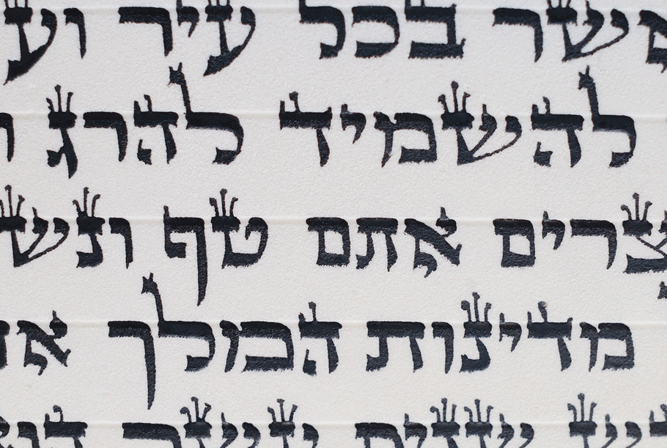 אשר בכל עיר וע
להשמיד להרג ו
צרים אתם טף ונש
מדינות המלך א